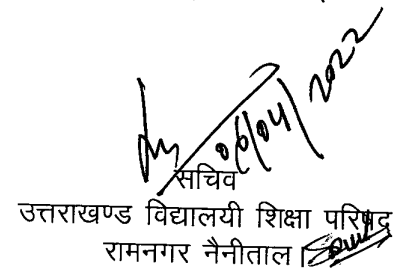 06/04/2022
सचिव
उत्तराखण्ड विद्यालयी शिक्षा परिषद
रामनगर नैनीताल।